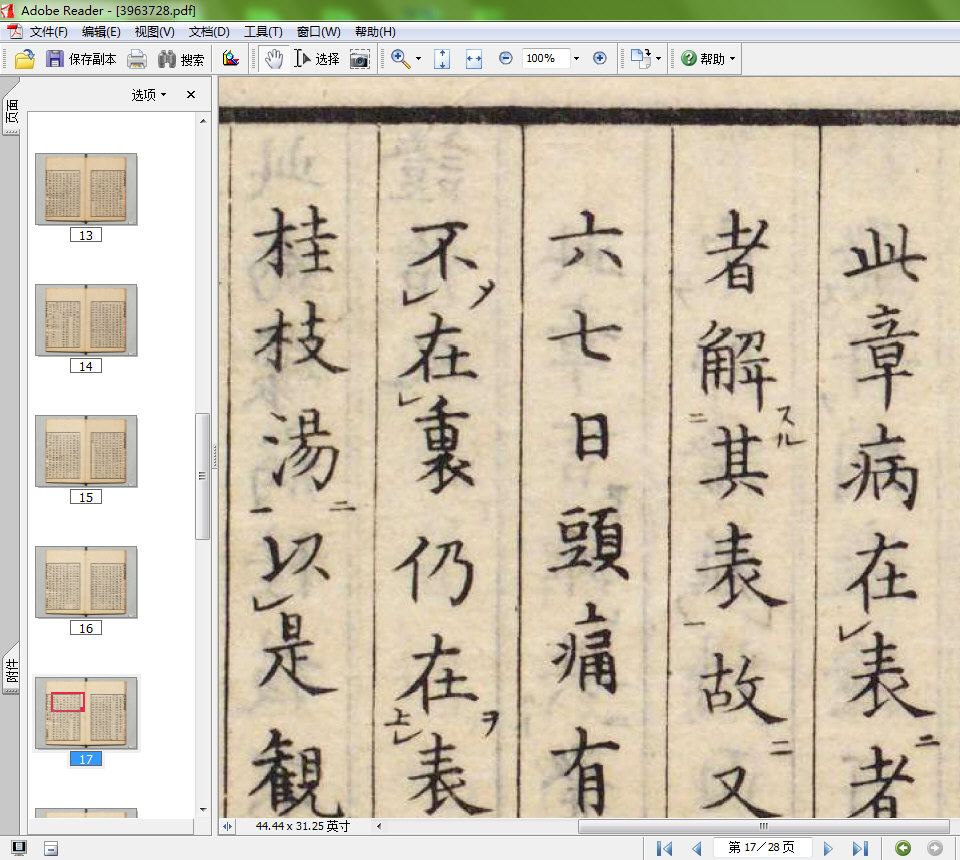 Adobe Reader - [3963728.pdf]
文件(F) 编辑(E) 视图(V) 文档(D) 工具(T) 窗口(W) 帮助(H)
保存副本 搜索 选择 100% 帮助
页面
选项
13
14
15
16
17
附件
此章病在表二者
者解スル二其表一故二又
六七日頭痛有
不ノ在裏仍在ヲ上表
桂枝湯二一以是観
44.44 x 31.25 英寸
第 17／28 页